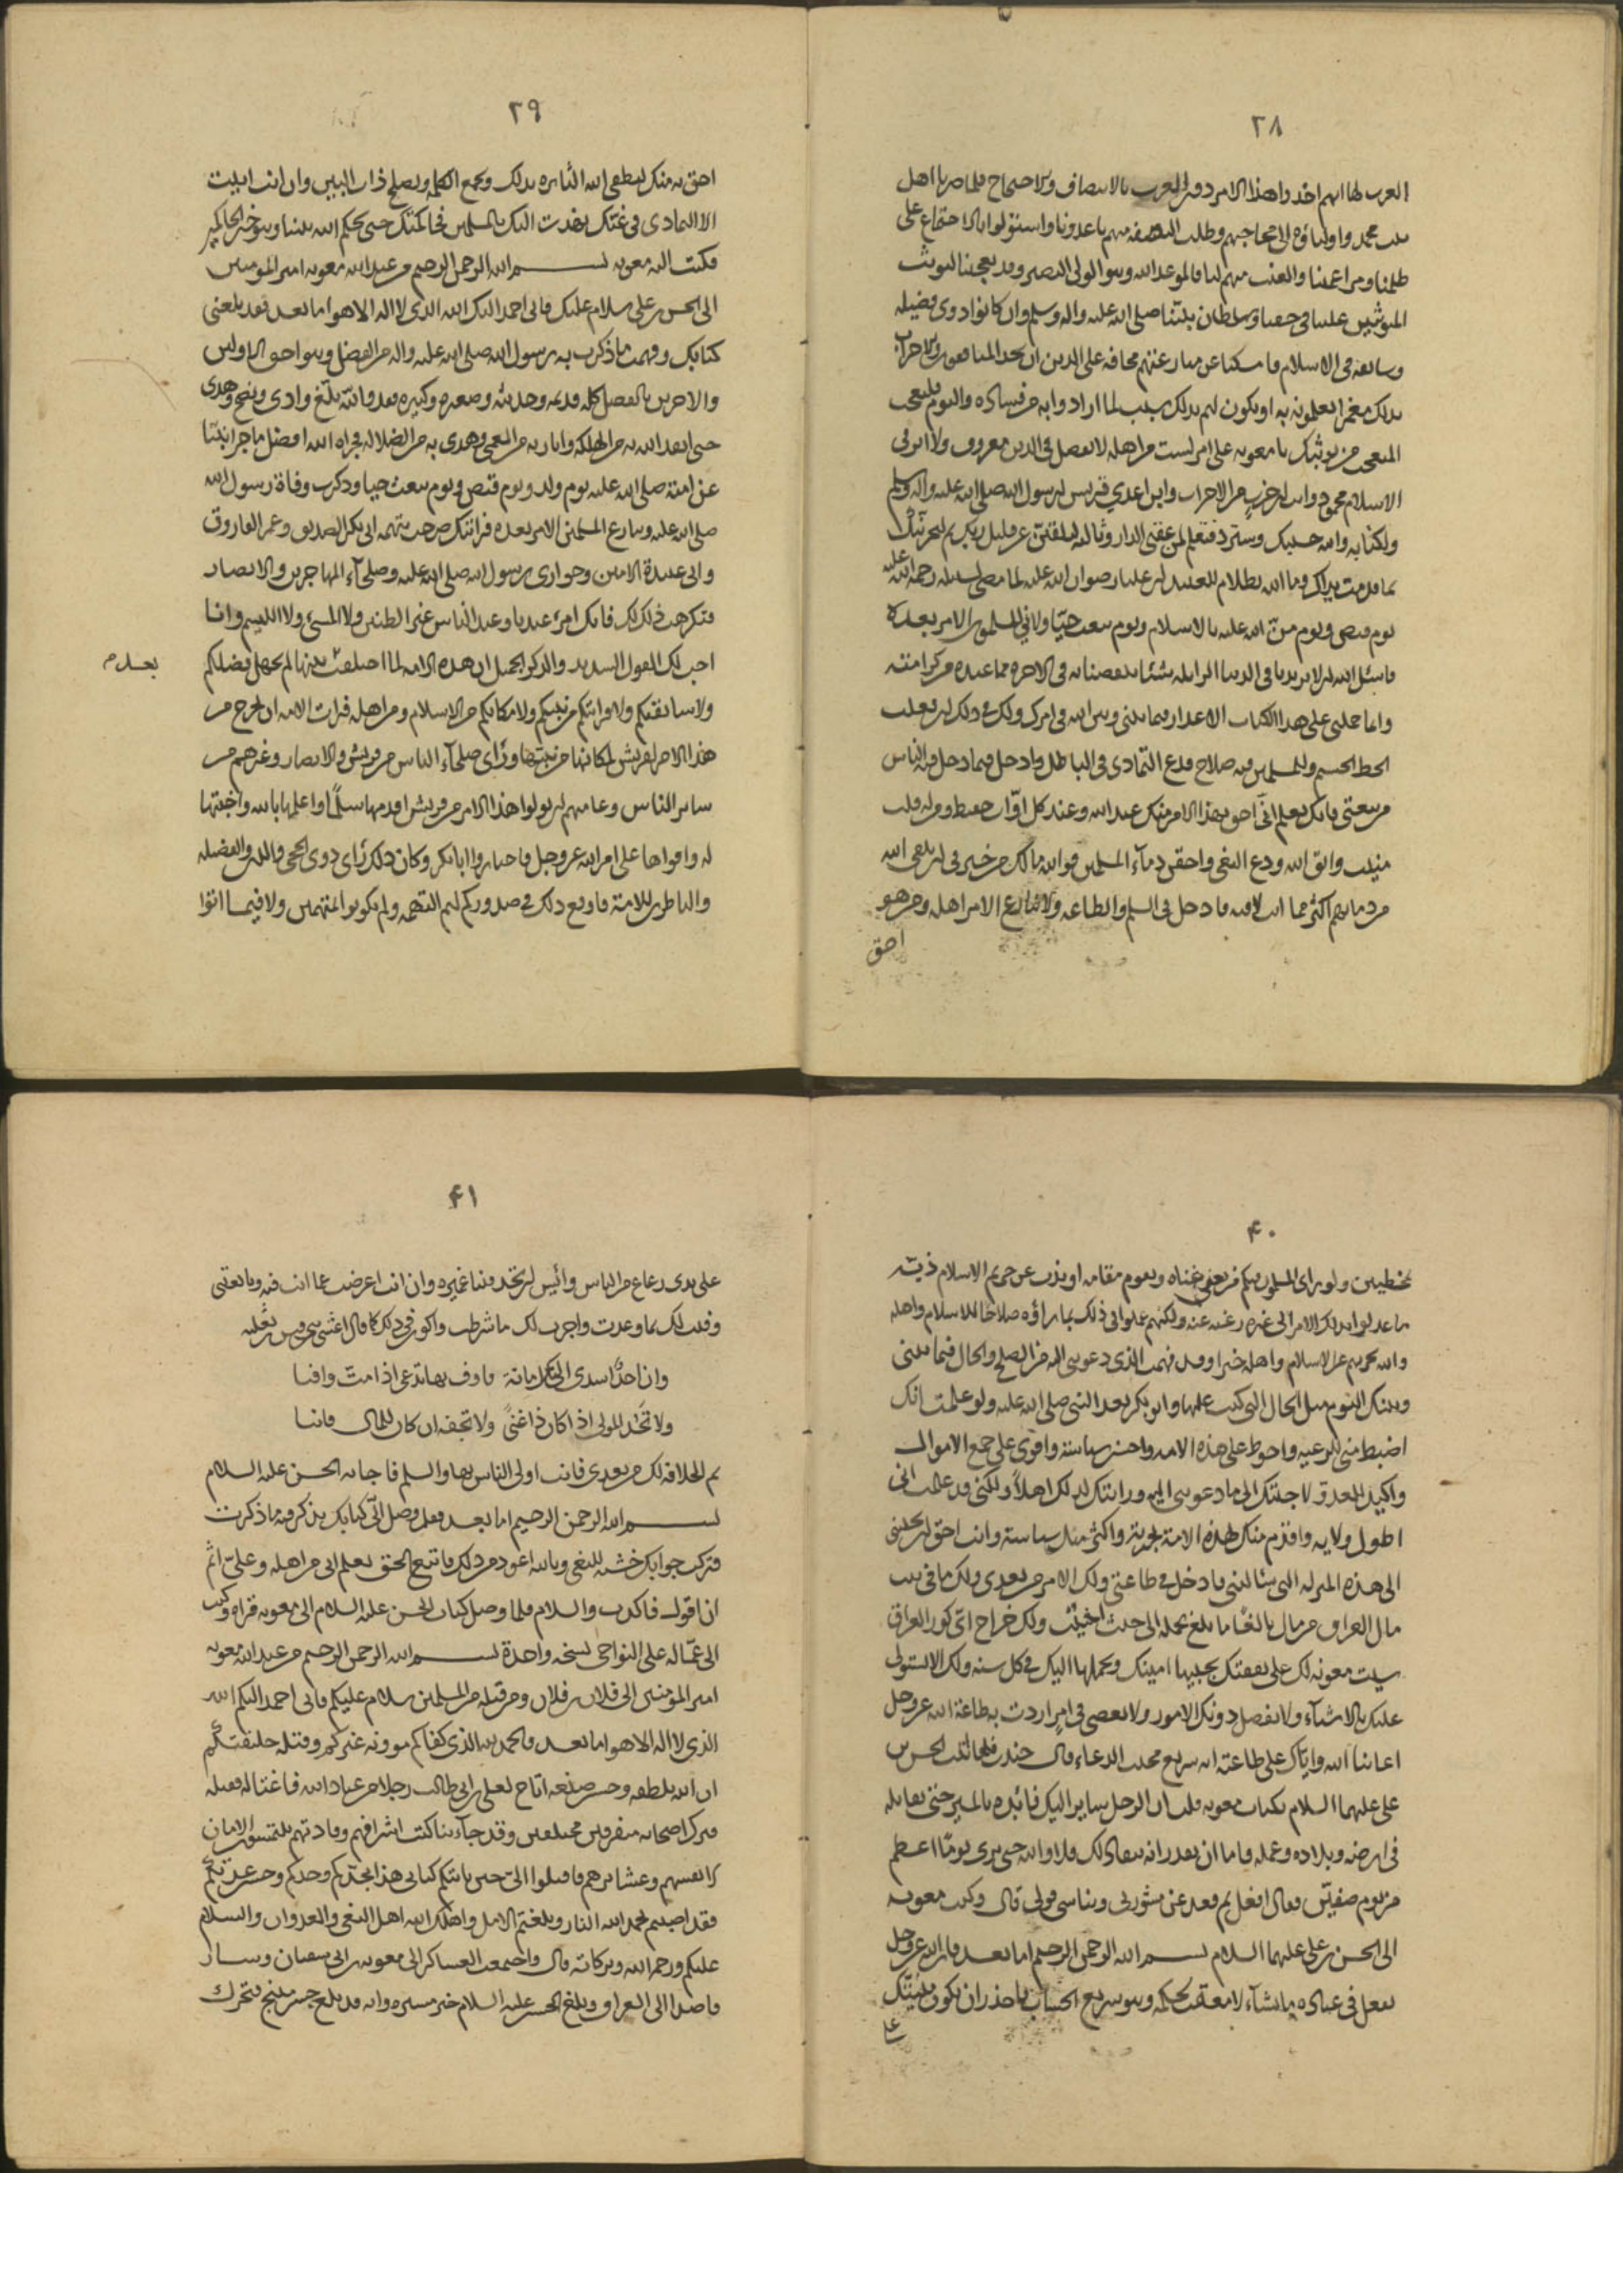 ٣٨
العرب لها انهم اخذوا هذا الامر دون العرب بالانصاف والاحتجاج فلما صرنا اهل
بيت محمد واولياؤه الى محاجتهم وطلب النصف منهم باعدونا واستولوا بالاجتماع على
ظلمنا ومراغمتنا والعنت منهم لنا فالموعد الله وهو الولى النصير وقد تعجبنا لتوثب
المتوثبين علينا فى حقنا وسلطان بيتنا صلى الله عليه واله وسلم وان كانوا ذوى فضيله
وسابقه فى الاسلام فامسكنا عن منازعتهم مخافه على الدين ان يجد المنافقون والاحزاب
بذلك مغمزا يثلمونه به او يكون لهم بذلك سبب لما ارادوا به من فساده واليوم فليعجب
المتعجب من توثبك يا معويه على امر لست من اهله لا بفضل فى الدين معروف ولا اثر فى
الاسلام محمود وانت ابن حزب من الاحزاب وابن اعدى قريش لرسول الله صلى الله عليه واله وسلم
ولكتابه والله حسيبك وسترد فتعلم لمن عقبى الدار وتالله لتلقين عن قليل ربك ثم ليجزينك
بما قدمت يداك وما الله بظلام للعبيد ان عليا رضوان الله عليه لما مضى لسبيله رحمة الله عليه
يوم قبض ويوم من الله عليه بالاسلام ويوم يبعث حيا ولانى المسلمون الامر بعده
فاسئل الله ان لا يزيدنا فى الدنيا الزايله شيئا ينقصنا به فى الاخره مما عنده من كرامته
وانما حملنى على هذا الكتاب الاعذار فيما بينى وبين الله فى امرك ولك فى ذلك ان فعلت
الحظ الجسيم وللمسلمين فيه صلاح فدع التمادى فى الباطل وادخل فيما دخل فيه الناس
من بيعتى فانك تعلم انى احق بهذا الامر منك عند الله وعند كل اواب حفيظ ومن له قلب
منيب واتق الله ودع البغى واحقن دماء المسلمين فوالله مالك من خير فى ان تلقى الله
من دمائهم اكثر مما انت لاقيه فادخل فى السلم والطاعه ولا تنازع الامر اهله ومن هو
احق
٣٩
احق به منك ليطفى الله النائره بذلك وتجمع الكلمه وتصلح ذات البين وان انت ابيت
الا التمادى فى غيك نهدت اليك بالمسلمين فحاكمتك حتى يحكم الله بيننا وهو خير الحاكمين
فكتب اليه معويه بسم الله الرحمن الرحيم من عبد الله معويه امير المومنين
الى الحسن بن على سلام عليك فانى احمد اليك الله الذى لا اله الا هو اما بعد فقد بلغنى
كتابك وفهمت ما ذكرت به رسول الله صلى الله عليه واله من الفضل وهو احق الاولين
والاخرين بالفضل كله قديمه وحديثه وصغيره وكبيره فقد والله بلغ وادى ونصح وهدى
حتى انقذ الله به من الهلكه وانار به من العمى وهدى به من الضلاله فجزاه الله افضل ما جزا نبيا
عن امته صلى الله عليه يوم ولد ويوم قبض ويوم يبعث حيا وذكرت وفاة رسول الله
صلى الله عليه وتنازع المسلمين الامر بعده فرايتك صرحت بتهمه ابى بكر الصديق وعمر الفاروق
وابى عبيدة الامين وحوارى رسول الله صلى الله عليه وصلحاء المهاجرين والانصار
فكرهت ذلك لك فانك امرء عندنا وعند الناس غير الظنين ولا المسئ ولا اللئيم وانا
احب لك القول السديد والذكر الجميل ان هذه الامه لما اختلفت بينها لم تجهل فضلكم
بعدم
ولا سابقتكم ولا قرابتكم من نبيكم ولا مكانكم من الاسلام ومن اهله فرات الامه ان تخرج من
هذا الامر لقريش لمكانها من نبيها وراى صلحاء الناس من قريش والانصار وغيرهم من
ساير الناس وعامتهم ان يولوا هذا الامر من قريش اقدمها سلما واعلمها بالله واحبها
له واقواها على امر الله عز وجل فاختاروا ابا بكر وكان ذلك راى ذوى الحجى والدين والفضيله
والناظرين للامة فاوقع ذلك فى صدوركم لهم التهمه ولم يكونوا المتهمين ولا فيما اتوا
۴٠
بمخطيين ولو راى المسلمون فيكم من يغنى غناه ويقوم مقامه او يذب عن حريم الاسلام ذبه
ما عدلوا بذلك الامر الى غيره رغبه عنه ولكنهم عملوا فى ذلك بما راؤه صلاحا للاسلام واهله
والله يجزيهم عن الاسلام واهله خيرا وقد فهمت الذى دعوتنى اليه من الصلح والحال فيما بينى
وبينك اليوم مثل الحال التى كنتم عليها وابو بكر بعد النبى صلى الله عليه ولو علمت انك
اضبط منى للرعيه واحوط على هذه الامه واحسن سياسة واقوى على جمع الاموال
واكيد للعدو لاجبتك الى ما دعوتنى اليه ورايتك لذلك اهلا ولكنى قد علمت انى
اطول ولايه واقدم منك لهذه الامة تجربة واكثر منك سياسة وانت احق ان تجيبنى
الى هذه المنزله التى سئالتنى فادخل فى طاعتى ولك الامر من بعدى ولك ما فى بيت
مال العراق من مال بالغا ما بلغ تحمله الى حيث احببت ولك خراج اى كور العراق
شيت معونه لك على نفقتك يجبيها امينك ويحملها اليك فى كل سنه ولك الا يستولى
عليك بالاشياء ولا تفصل دونك الامور ولا تعصى فى امر اردت به طاعة الله عز وجل
اعاننا الله واياك على طاعته انه سريع مجيب الدعاء قال جندب فلما اتيت الحسن بن
على عليهما السلام بكتاب معويه قلت ان الرجل ساير اليك فابده بالمسير حتى تقاتله
فى ارضه وبلاده وعمله فاما ان تقدر انه ينقاد لك فلا والله حتى يرى يوما اعظم
من يوم صفين فقال افعل ثم قعد عن مشورتى وتناسى قولى قال وكتب معويه
الى الحسن بن على عليهما السلام بسم الله الرحمن الرحيم اما بعد فان الله عز وجل
يفعل فى عباده ما يشاء لا معقب لحكمه وهو سريع الحساب فاحذر ان تكون منيتك
على
۴١
على يدى رعاع من الناس وائيس ان تجد فينا غميزه وان انت اعرضت عما انت فيه وبايعتنى
وفيت لك بما وعدت واجزت لك ما شرطت واكون فى ذلك كما قال اعشى بنى قيس بن ثعلبه
وان احد اسدى اليك امانة فاوف بها تدعى اذا مت وافيا
ولا تحسد المولى اذا كان ذا غنى ولا تجفه ان كان للمال فانيا
ثم الخلافه لك من بعدى فانت اولى الناس بها والسلم فاجابه الحسن عليه السلام
بسم الله الرحمن الرحيم اما بعد فقد وصل الى كتابك تذكر فيه ما ذكرت
فتركت جوابك خشيه البغى وبالله اعوذ من ذلك فاتبع الحق تعلم انى من اهله وعلى اثم
ان اقول فاكذب والسلام فلما وصل كتاب الحسن عليه السلام الى معويه قراه وكتب
الى عماله على النواحى نسخه واحدة بسم الله الرحمن الرحيم من عبد الله معويه
امير المؤمنين الى فلان بن فلان ومن قبله من المسلمين سلام عليكم فانى احمد اليكم الله
الذى لا اله الا هو اما بعد والحمد لله الذى كفاكم موونه عدوكم وقتله خليفتكم
ان الله بلطفه وحسن صنعه اتاح لعلى بن ابى طالب رجلا من عباد الله فاغتاله فقتله
فترك اصحابه متفرقين مختلفين وقد جاءتنا كتب اشرافهم وقادتهم يلتمسون الامان
لانفسهم وعشايرهم فاقبلوا الى حين ياتيكم كتابى هذا بجدكم وجندكم وحسن عدتكم
فقد اصبتم بحمد الله الثار وبلغتم الامل واهلك الله اهل البغى والعدوان والسلام
عليكم ورحمة الله وبركاته قال واجتمعت العساكر الى معويه بن ابى سفيان وسار
قاصدا الى العراق وبلغ الحسن عليه السلام خبر مسيره وانه قد بلغ جسر منبج فتحرك